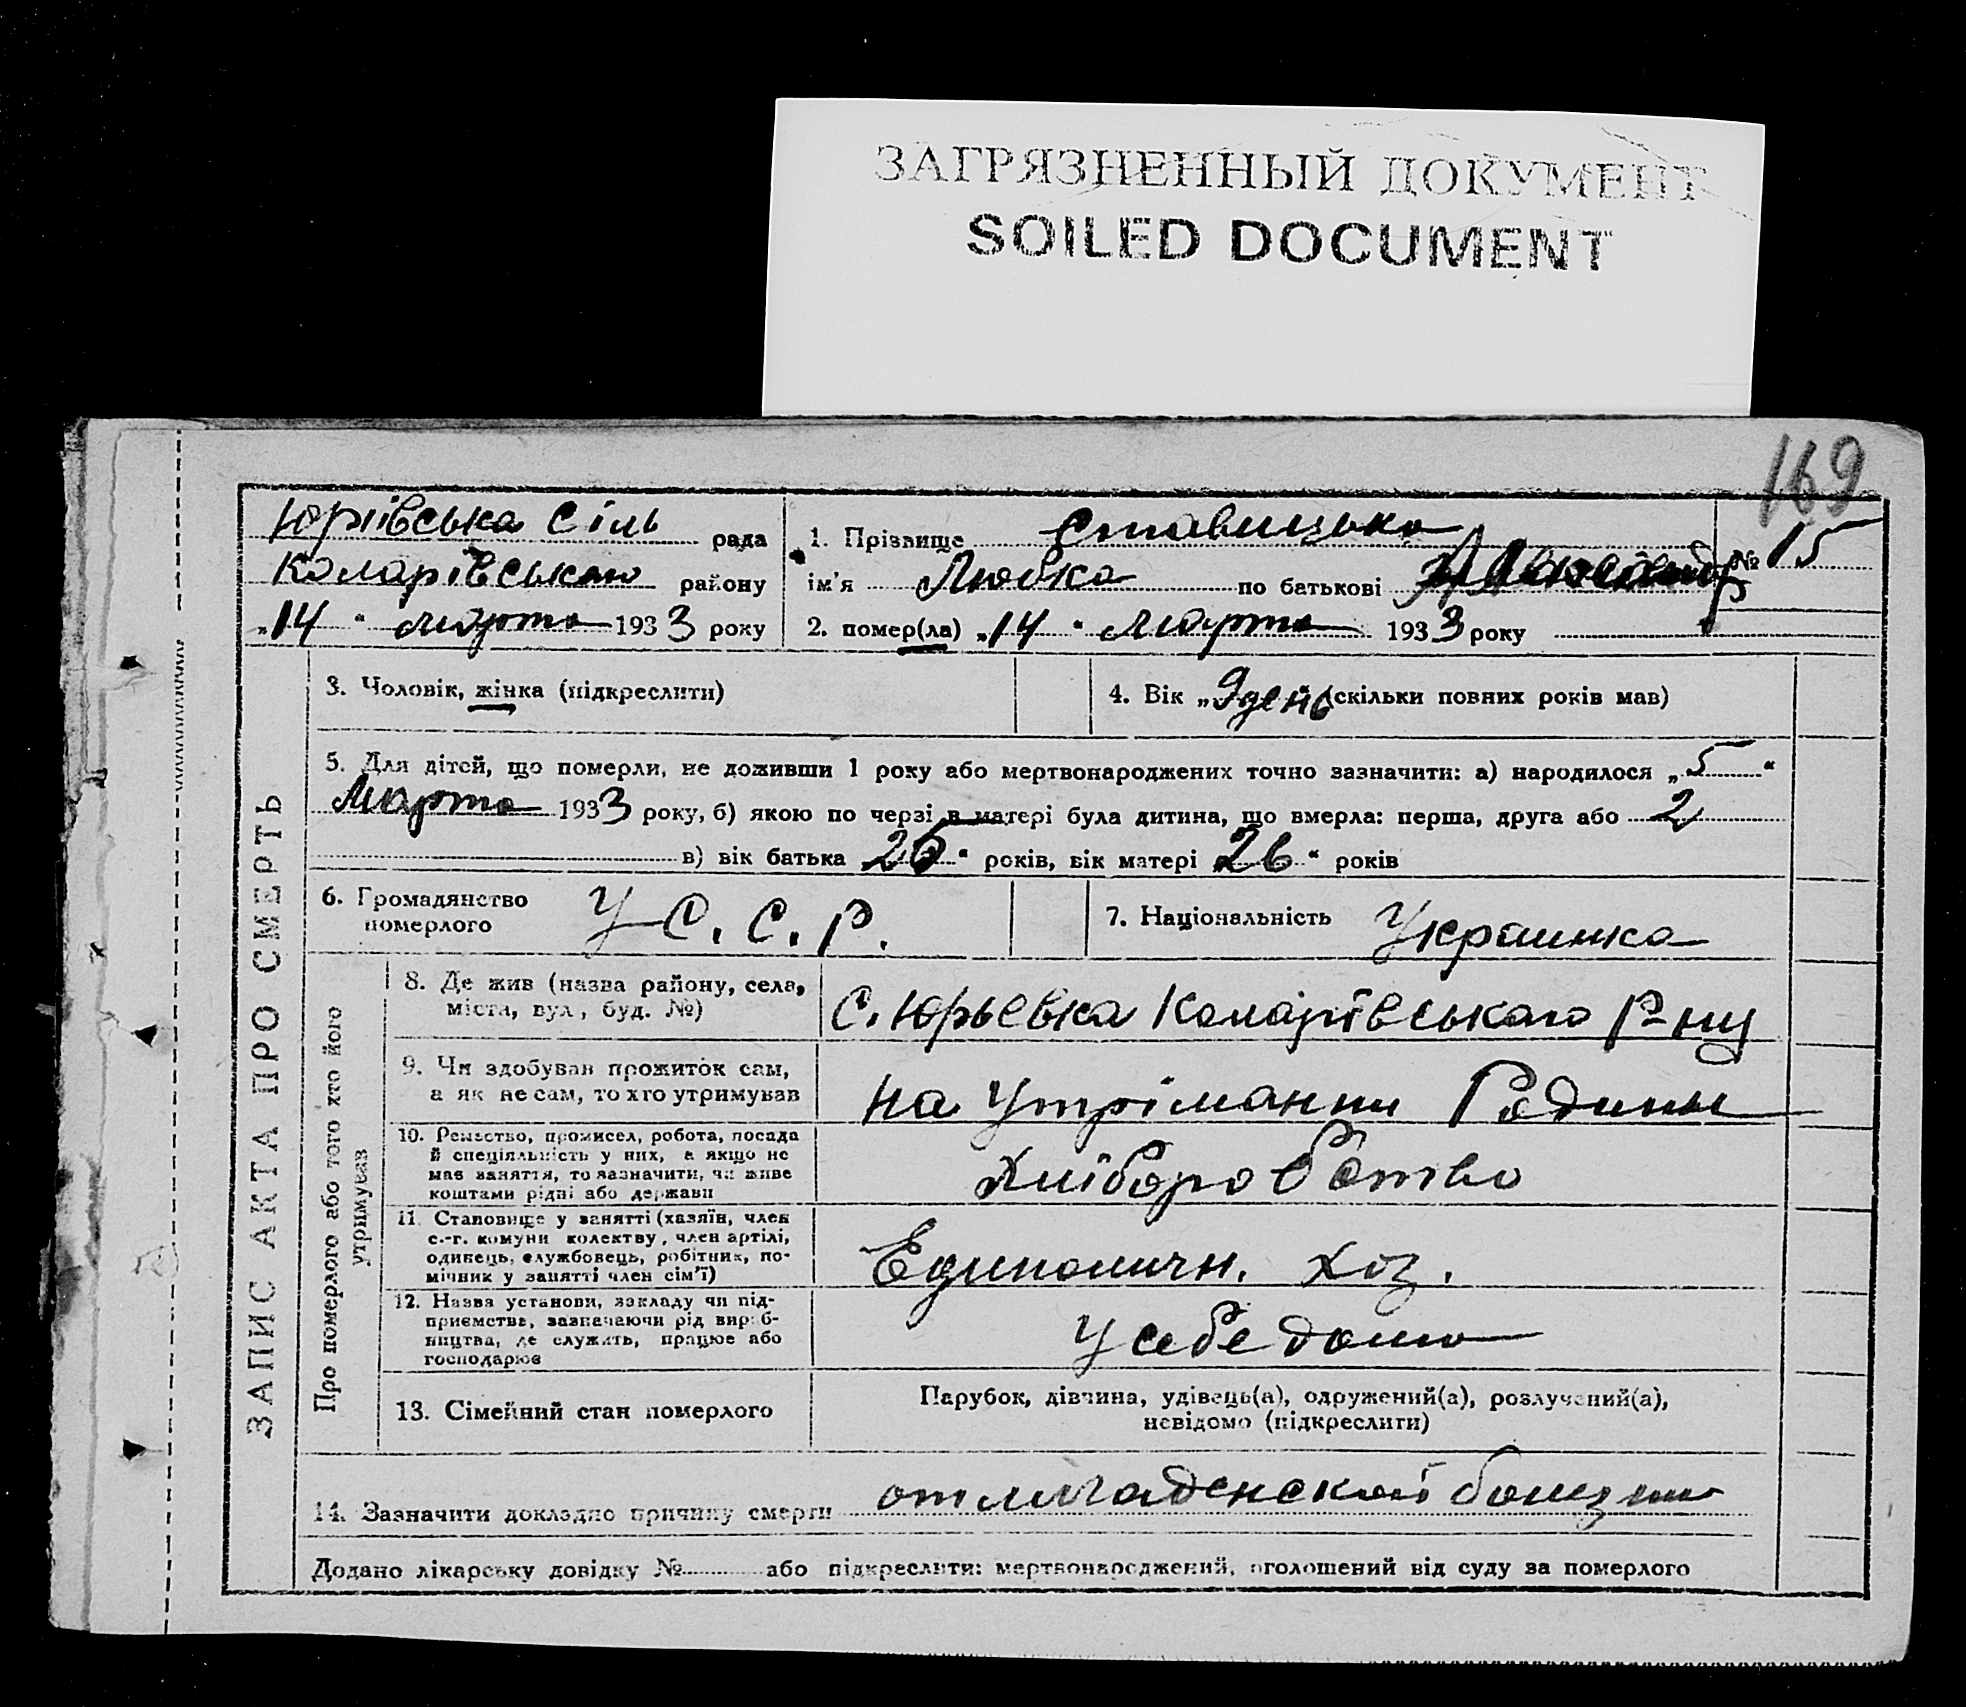 ЗАГРЯЗНЕННЫЙ ДОКУМЕНТ
SOILED DOCUMENT
169
Юрiiвська сіль рада
Коларівського району
„14“ марта 1933 року
1. Прізвище Ставицька
ім'я Любка по батькові Александр
№ 15
2. помер(ла) „14“ Марта 1933 року
ЗАПИС АКТА ПРО СМЕРТЬ
3. Чоловік, жінка (підкреслити)
4. Вік „9 день (скільки повних років мав)
5. Для дітей, що померли, не доживши 1 року або мертвонароджених точно зазначити: а) народилося „5“
Марта 1933 року, б) якою по черзі в матері була дитина, що вмерла: перша, друга або 2
в) вік батька 26“ років, вік матері 26“ років
6. Громадянство
померлого
У С. С. Р.
7. Національність Украинка
Про померлого або того хто його
утримував
8. Де жив (назва району, села,
міста, вул., буд. №)
С. Юрьевка Коларівського Р-ну
9. Чи здобував прожиток сам,
а як не сам, то хто утримував
на Утріманни Родины
10. Ремество, промисел, робота, посада
й спеціяльність у них, а якщо не
мав заняття, то зазначити, чи живе
коштами рідні або держави
Хліборобство
11. Становище у занятті (хазяїн, член
с.-г. комуни колективу, член артілі,
одинець, службовець, робітник, по-
мічник у занятті член сім'ї)
Единоличн. Хоз.
12. Назва установи, закладу чи під-
приємства, зазначаючи рід вироб-
ництва, де служить, працює або
господарює
У себе дома
13. Сімейний стан померлого
Парубок, дівчина, удівець(а), одружений(а), розлучений(а),
невідомо (підкреслити)
14. Зазначити докладно причину смерти от младенской болезни
Додано лікарську довідку № або підкреслити: мертвонароджений, оголошений від суду за померлого